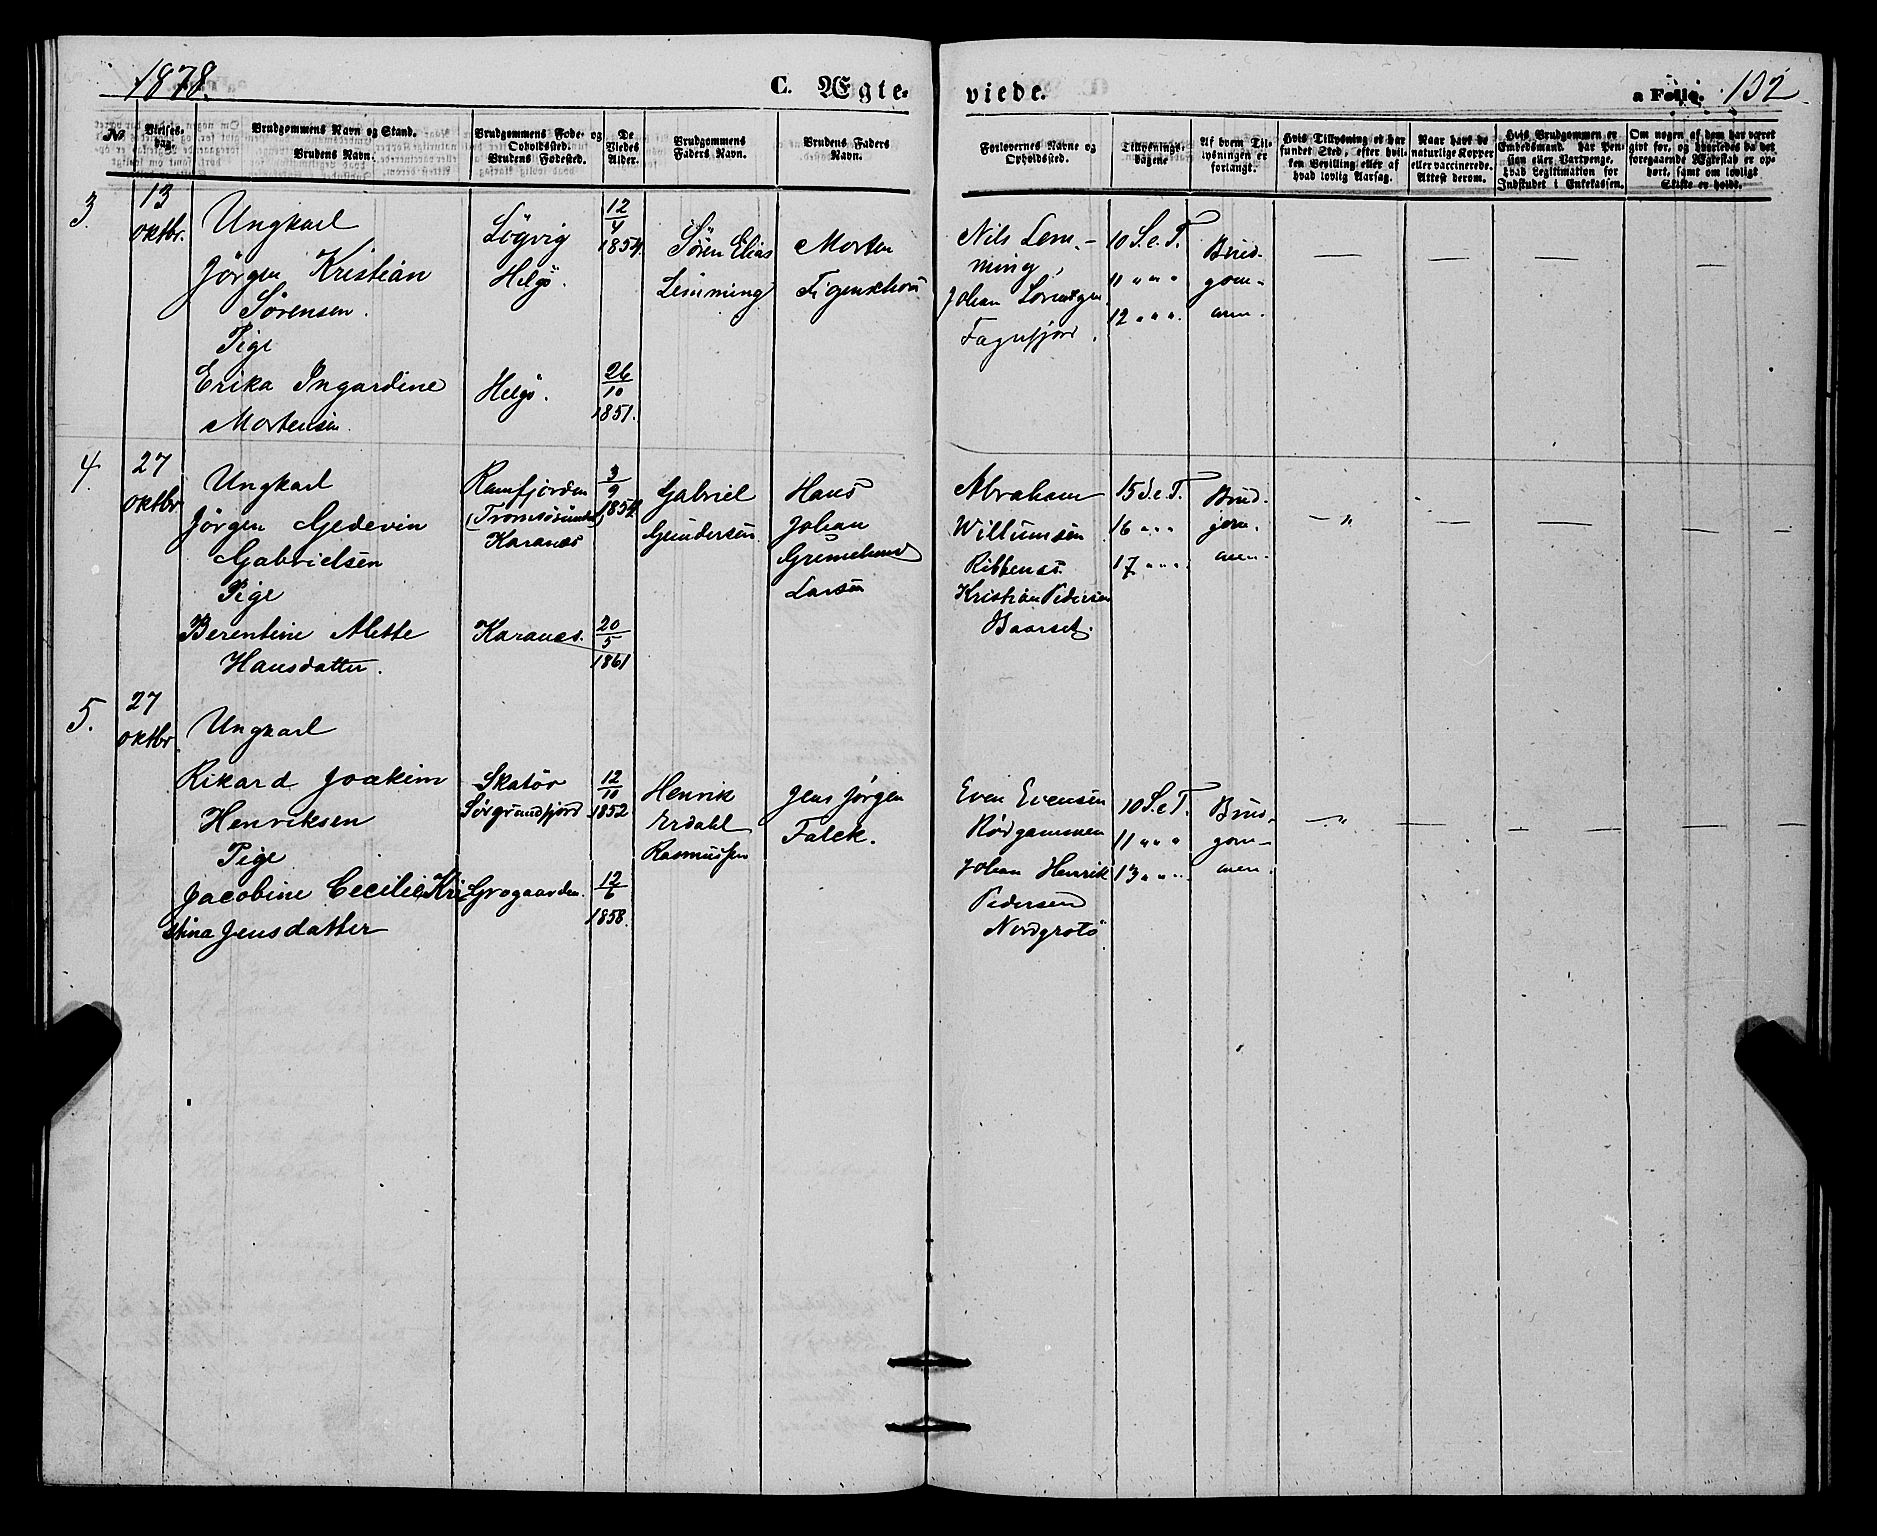 1878.
C. Ægte-
viede.
a Folio. 132.
No
Vielses-
dag.
Brudgommens Navn og Stand.
Brudens Navn.
Brudgommens Føde- og
Opholdssted.
Brudens Fødested.
De
Viedes
Alder.
Brudgommens
Faders Navn.
Brudens Faders
Navn.
Forlovernes Navne og
Opholdssted.
Tillysnings-
dagene
Af hvem Til-
lysningen er
forlangt.
Hvis Tillysning ei har
fundet Sted, efter hvil-
ken Bevilling eller af
hvad lovlig Aarsag.
Naar havt de
naturlige Kopper
eller vaccinerede.
Attest derom.
Hvis Brudgommen er
Embedsmand, har Pen-
sion eller Vartpenge,
hvad Legitimation for
Indskudet i Enkekassen.
Om nogen af dem har været
gift før, og hvorledes da det
foregaaende Ægteskab er op-
hørt, samt om lovligt
Skifte er holdt.
3.
13
oktbr.
Ungkarl
Jörgen Kristian
Sörensen.
Pige
Erika Ingardine
Mortensen.
Lögvig
Helgö.
Helgö.
12
4
1854.
26
10
1851.
Sören Elias
Lemming
Morten
Figenschou
Nils Lem-
ming,
Johan Sörensen
Fagerfjord.
10 S. e. T.
11 " " "
12 " " "
Brud-
gom-
men.
4.
27
oktbr
Ungkarl
Jörgen Gedevin
Gabrielsen
Pige
Berentine Alette
Hansdatter.
Ramfjorden
(Tromsösundet)
Karanes
Karanes.
3
9
1854.
20
5
1861
Gabriel
Gundersen
Hans
Johan
Larsen
Abraham
Willumsen
Ribbenes.
Kristian Pedersen
15 S. e. T.
16 " " "
17 " " "
Brud-
gom-
men.
5.
27
oktbr
Ungkarl
Rikard Joakim
Henriksen
Pige
Jacobine Cecilie Kri-
stina Jensdatter
Skatör
Sörgrundfjord
Grogaarden.
12
10
1852
12
6
1858.
Henrik
Erdahl
Rasmussen
Jens Jörgen
Falck.
Even Evensen
Rödgammen
Johan Henrik
Pedersen
Nordgrotö.
10 S. e. T.
11 " " "
13 " " "
Brud-
gom-
men.